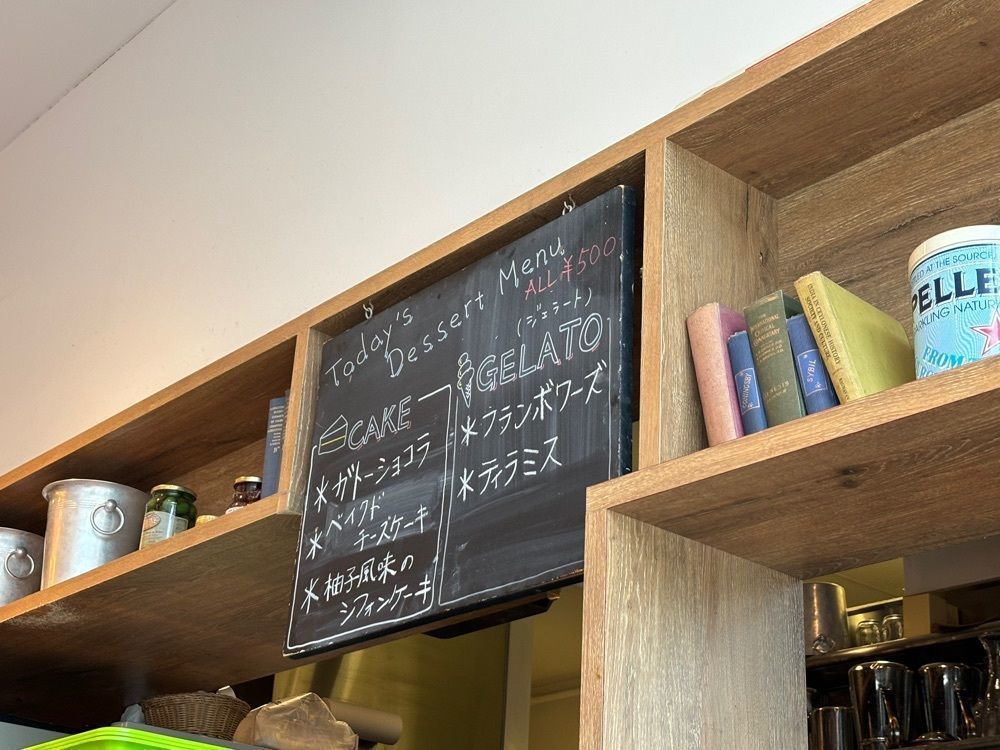 Today's
Dessert Menu
ALL ¥500
CAKE
＊ガトーショコラ
＊ベイクド
チーズケーキ
＊柚子風味の
シフォンケーキ
(ジェラート)
GELATO
＊フランボワーズ
＊ティラミス
CONINGSBY
THE
INTERNATIONAL
CRITICAL
COMMENTARY
SYBIL
AT THE SOURCE
PELLE
SPARKLING NATURA
FROM